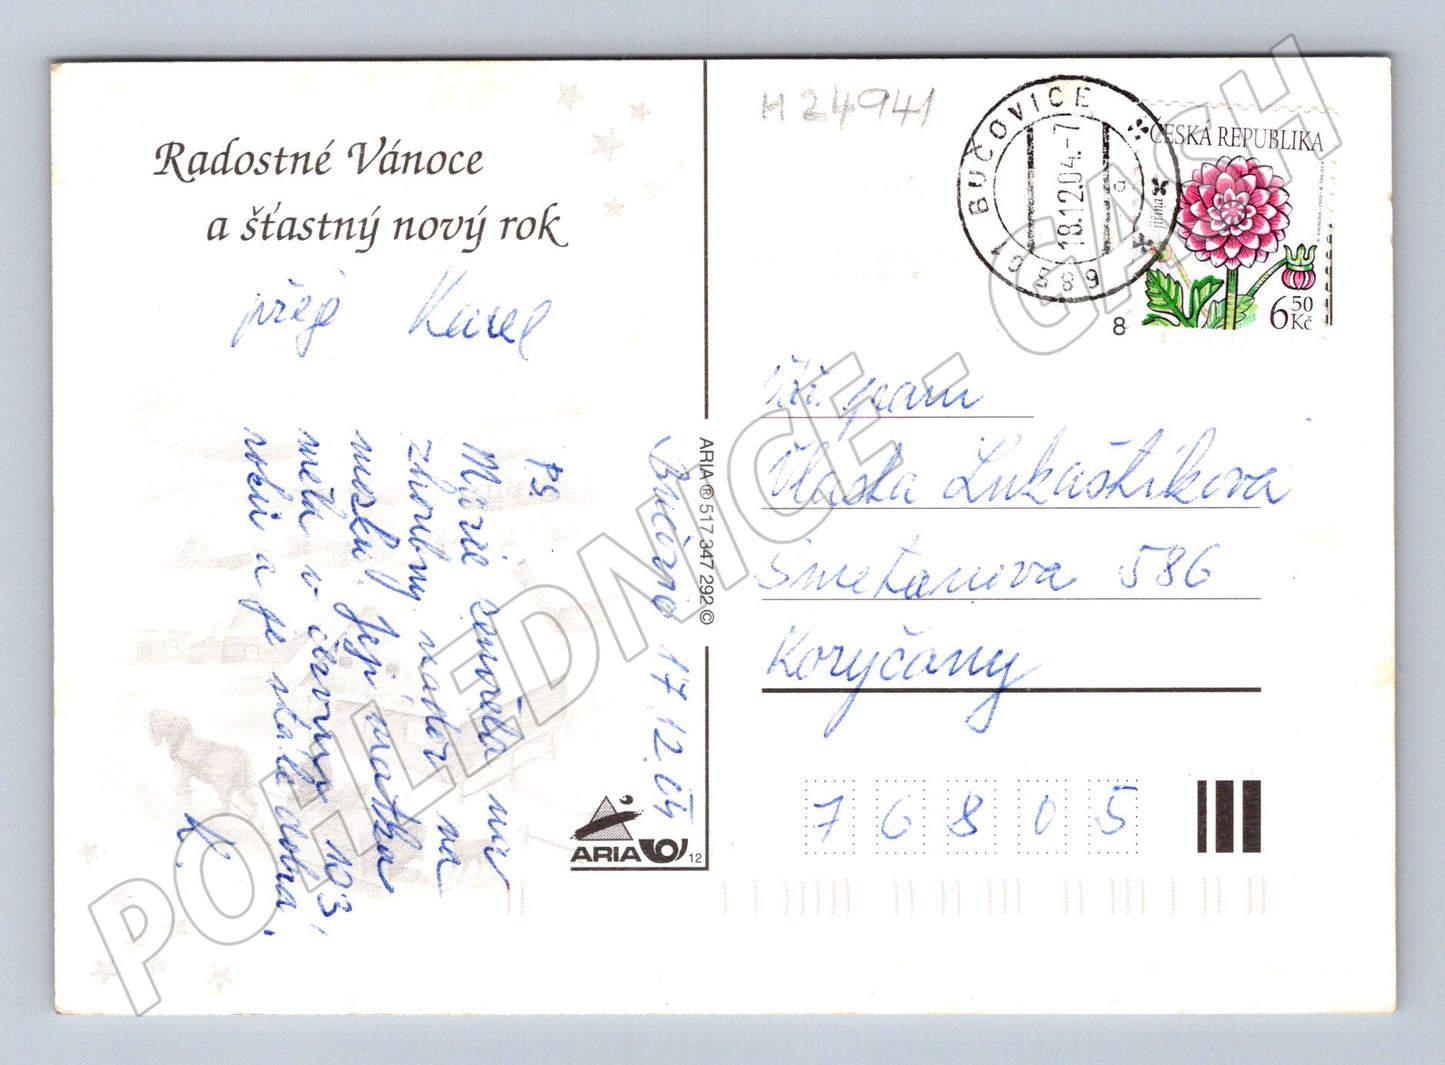 Radostné Vánoce
a šťastný nový rok
přeje Karel
P.S.
Marie zemřela na
zhoubný nádor na
mozku. Její matka
měla v červnu 103
roků a je stále dobrá.
K.
Bučovice 17.12.04
ARIA ® 517 347 292 ©
ARIA
12
H24941
BUČOVICE
18.12.04.-7
a
68501
8
ČESKÁ REPUBLIKA
Jiřina
6 50 Kč
Vž. paní
Vlasta Lukaštíková
Smetanova 586
Koryčany
76805
POHLEDNICE - GASH